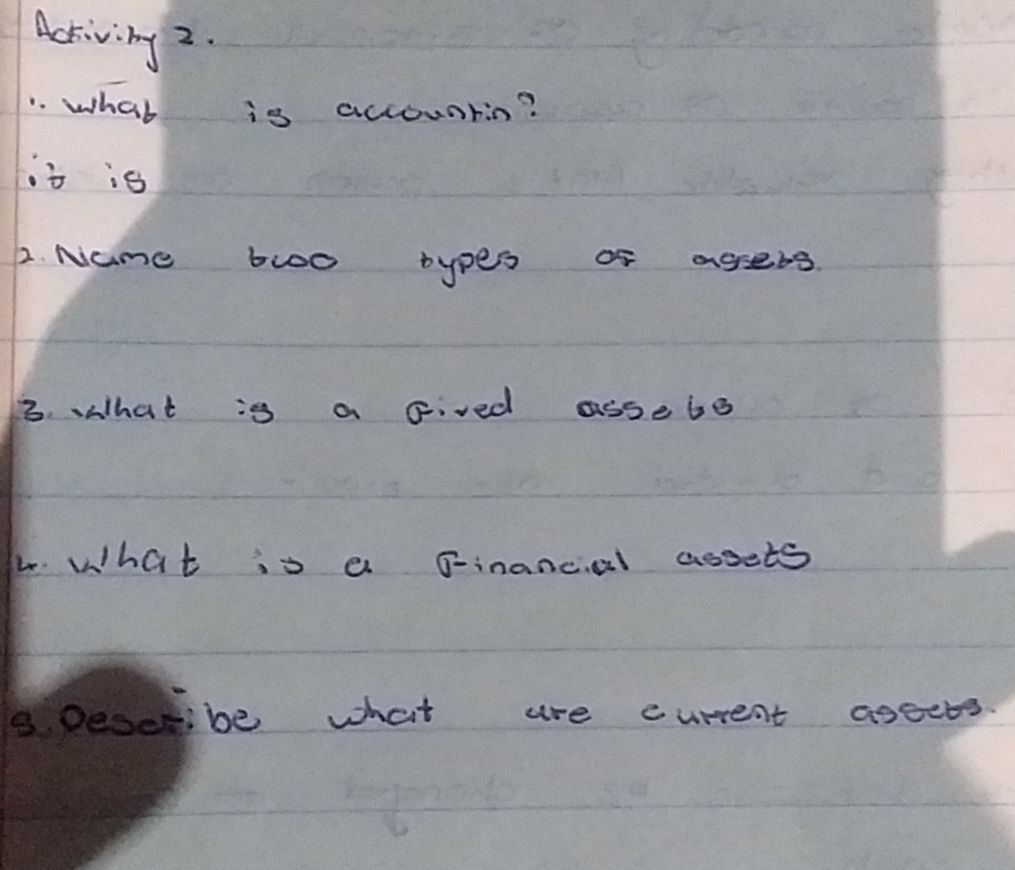 Activity 2.
1. What is accountin?
it is
2. Name two types of assets.
3. What is a Fixed assets
4. What is a Financial assets
5. Describe what are current assets.